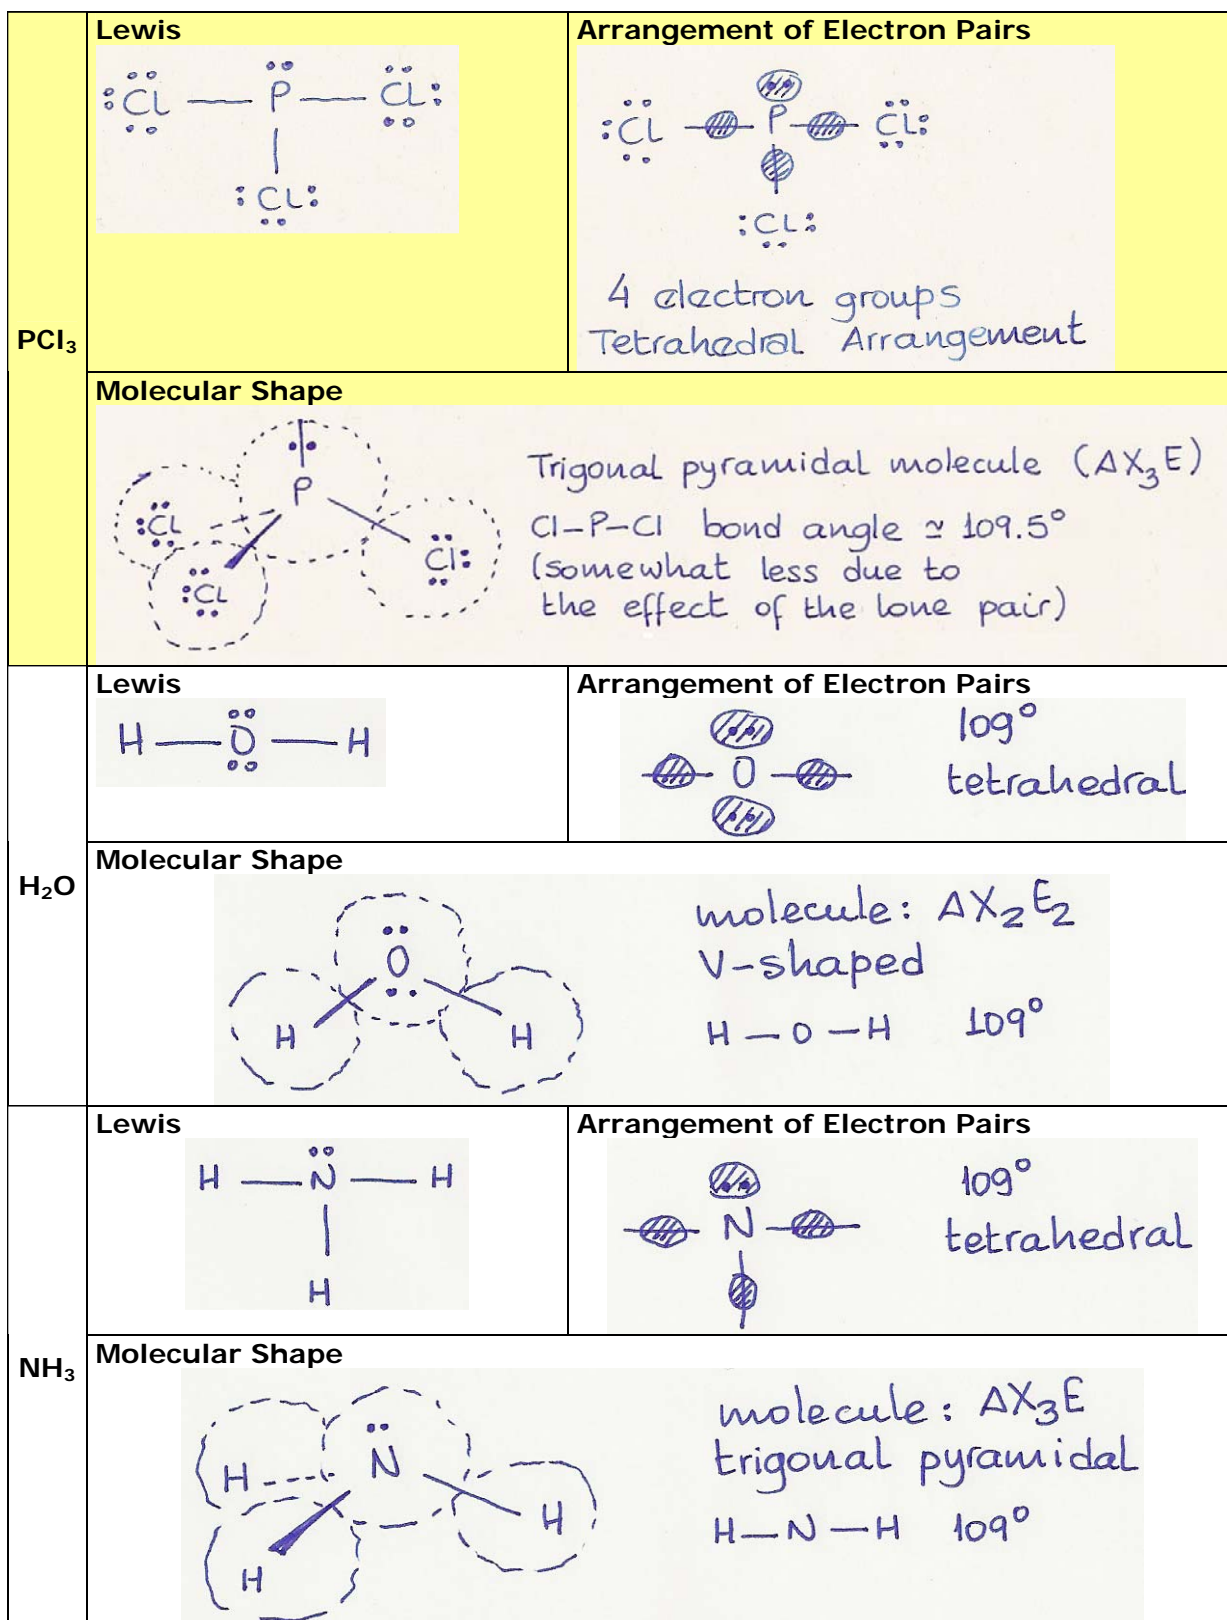 Lewis
Arrangement of Electron Pairs
Cl — P — Cl
Cl
Cl P Cl
Cl
4 electron groups
Tetrahedral Arrangement
PCl₃
Molecular Shape
P
Cl
Cl
Cl
Trigonal pyramidal molecule (AX₃E)
Cl–P–Cl bond angle ≃ 109.5°
(somewhat less due to
the effect of the lone pair)
Lewis
Arrangement of Electron Pairs
H — O — H
O
109°
tetrahedral
H₂O
Molecular Shape
O
H H
molecule: AX₂E₂
V-shaped
H – O – H 109°
Lewis
Arrangement of Electron Pairs
H — N — H
H
N
109°
tetrahedral
NH₃
Molecular Shape
N
H
H
H
molecule: AX₃E
trigonal pyramidal
H – N – H 109°